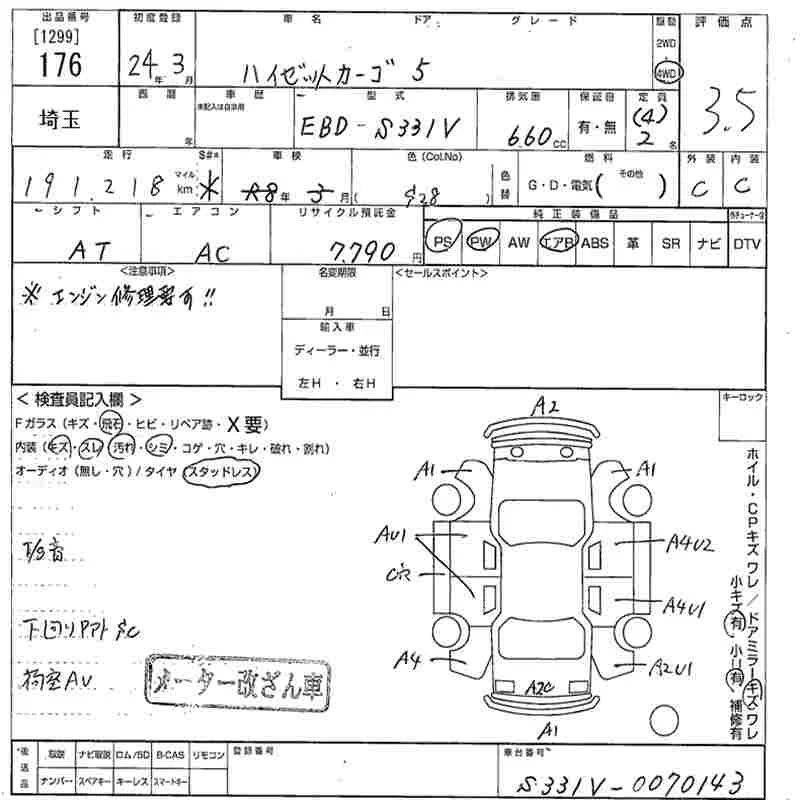 出品番号 初度登録 車名 ドア グレード 駆動 評価点
[1299]
176 24年 3月 ハイゼットカーゴ 5 2WD 4WD 3.5
埼玉 西暦 年 車歴 未記入は自家用 型式 排気量 保証書 定員
EBD-S331V 660cc 有・無 (4) 2名
走行 S#* 車検 色(Col.No) 色替 燃料 外装 内装
191,218 マイル km * R8年 3月 ( S28 ) G・D・電気( その他 ) C C
シフト エアコン リサイクル預託金 純正装備品
AT AC 7,790円 PS PW AW エアB ABS 革 SR ナビ DTV
<注意事項> 名変期限 <セールスポイント>
※エンジン修理要す!!
月 日
輸入車
ディーラー・並行
左H・右H
<検査員記入欄> キーロック
Fガラス(キズ・飛石・ヒビ・リペア跡・X要)
内装(キズ・スレ・汚れ・シミ・コゲ・穴・キレ・破れ・割れ)
オーディオ(無し・穴)/タイヤ(スタッドレス)
A2
A1 A1
AU1 A4U2
C穴
A4U1
A4 A2U1
A2C
A1
T/S音
下回りアト
AU
メーター改ざん車
ホイル・CPキズ ワレ/ドアミラーキズ ワレ
小キズ有 小U有 補修有
後送品 取説 ナビ取説 ロム/SD B-CAS リモコン 登録番号 車台番号
ナンバー スペアキー キーレス スマートキー S331V-0070143